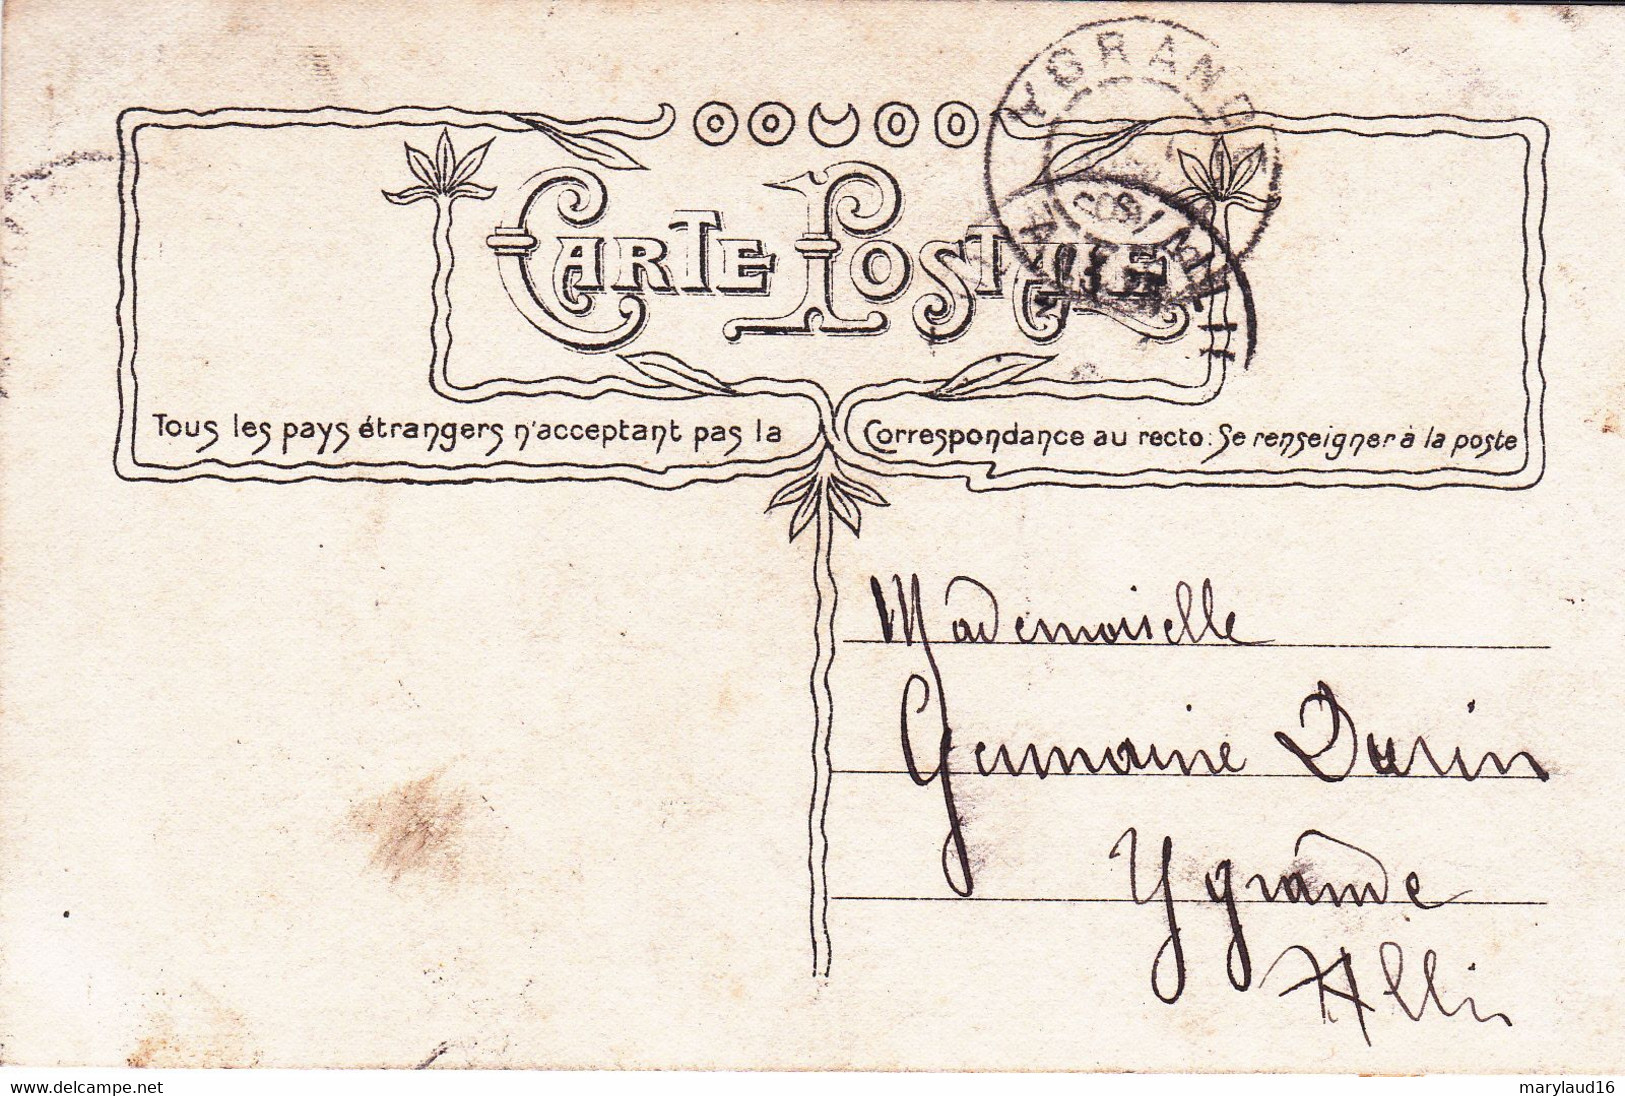 YGRANDE
CARTE POSTALE
Tous les pays étrangers n'acceptant pas la Correspondance au recto: Se renseigner à la poste
Mademoiselle
Germaine Durin
Ygrande
Allier
www.delcampe.net
marylaud16